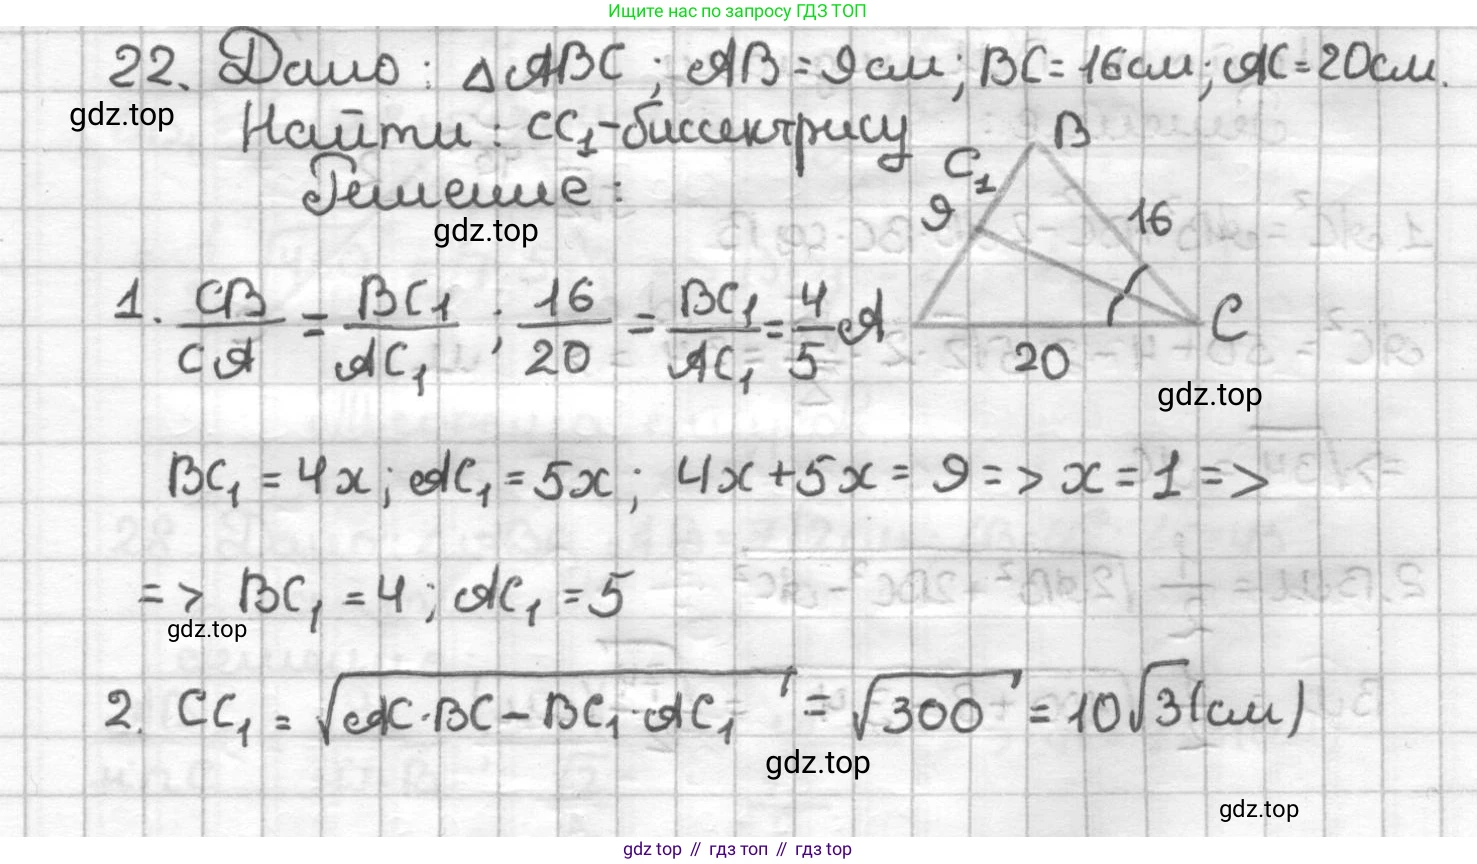 Ищите нас по запросу ГДЗ ТОП
22. Дано: △ABC; AB = 9см; BC = 16см; AC = 20см.
gdz.top
Найти: CC₁-биссектрису
Решение:
gdz.top
B
C₁
9
16
A
C
20
gdz.top
1. CB/CA = BC₁/AC₁; 16/20 = BC₁/AC₁ = 4/5
BC₁ = 4x; AC₁ = 5x; 4x + 5x = 9 => x = 1 =>
=> BC₁ = 4; AC₁ = 5
gdz.top
2. CC₁ = √(AC·BC − BC₁·AC₁) = √300 = 10√3 (см)
gdz.top
gdz.top
gdz top // гдз топ // гдз top